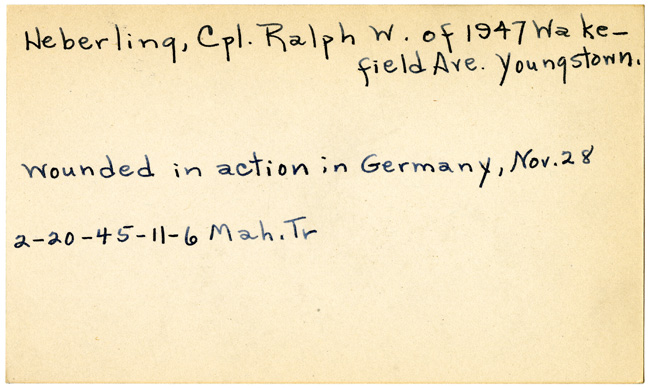 Heberling, Cpl. Ralph W. of 1947 Wake-
field Ave. Youngstown.
wounded in action in Germany, Nov. 28
2-20-45-11-6 Mah. Tr